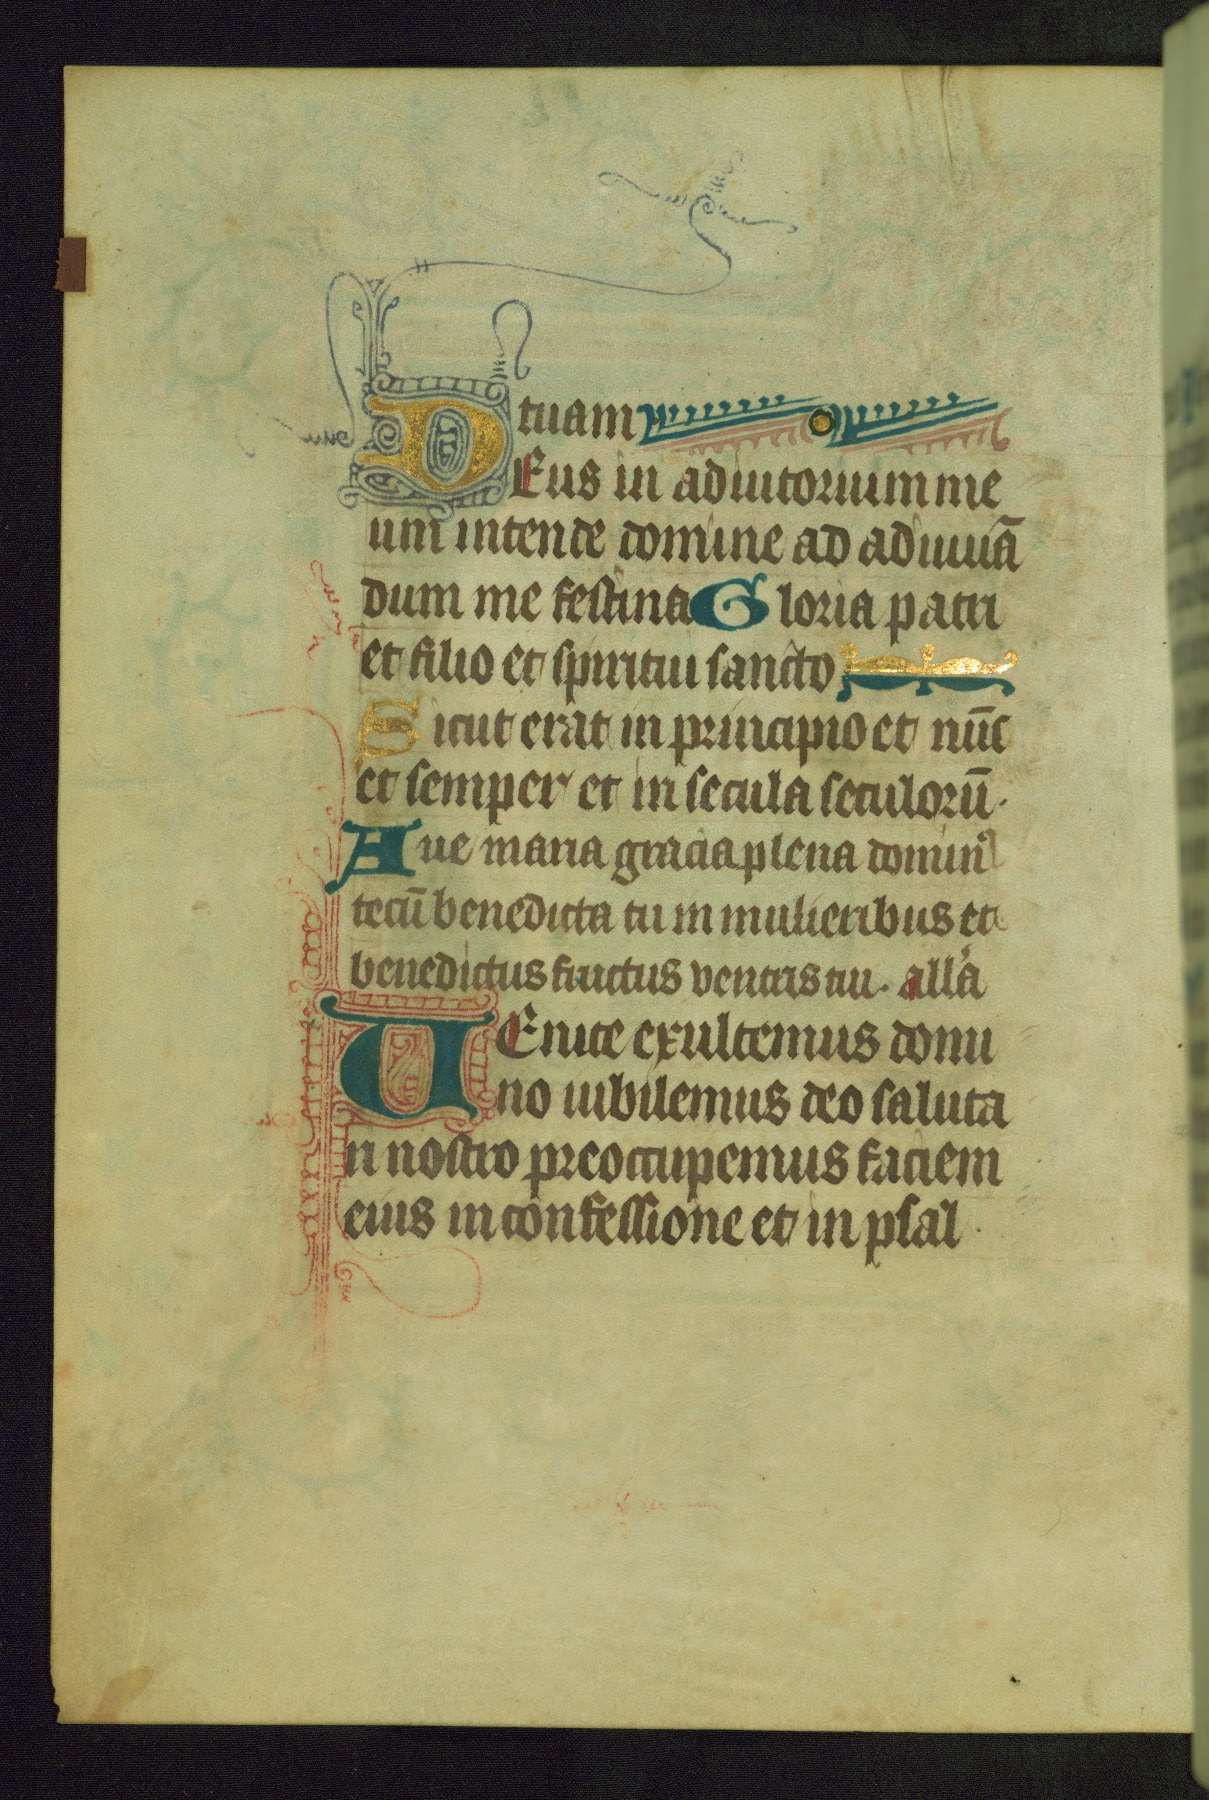 tuam
DEus in adiutorium me
um intende domine ad adiuuā
dum me festina Gloria patri
et filio et spiritui sancto
Sicut erat in principio et nūc
et semper et in secula seculorū.
Aue maria gracia plena domin⁹
tecū benedicta tu in mulieribus et
benedictus fructus ventris tui. all'a
UEnite exultemus domi
no iubilemus deo saluta
ri nostro preoccupemus faciem
eius in confessione et in psal